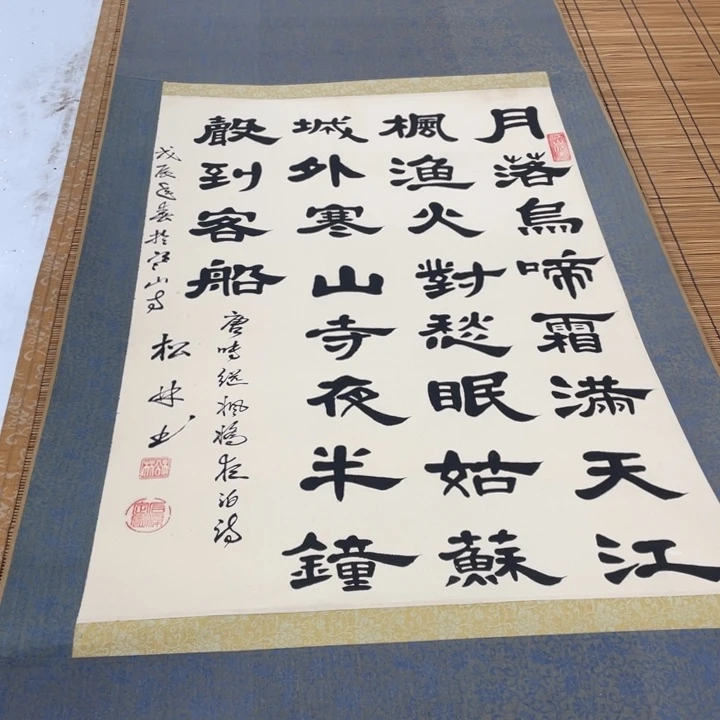 月落烏啼霜滿天江
楓漁火對愁眠姑蘇
城外寒山寺夜半鐘
聲到客船
唐張繼楓橋夜泊詩
戊辰春於寒山寺
松林書